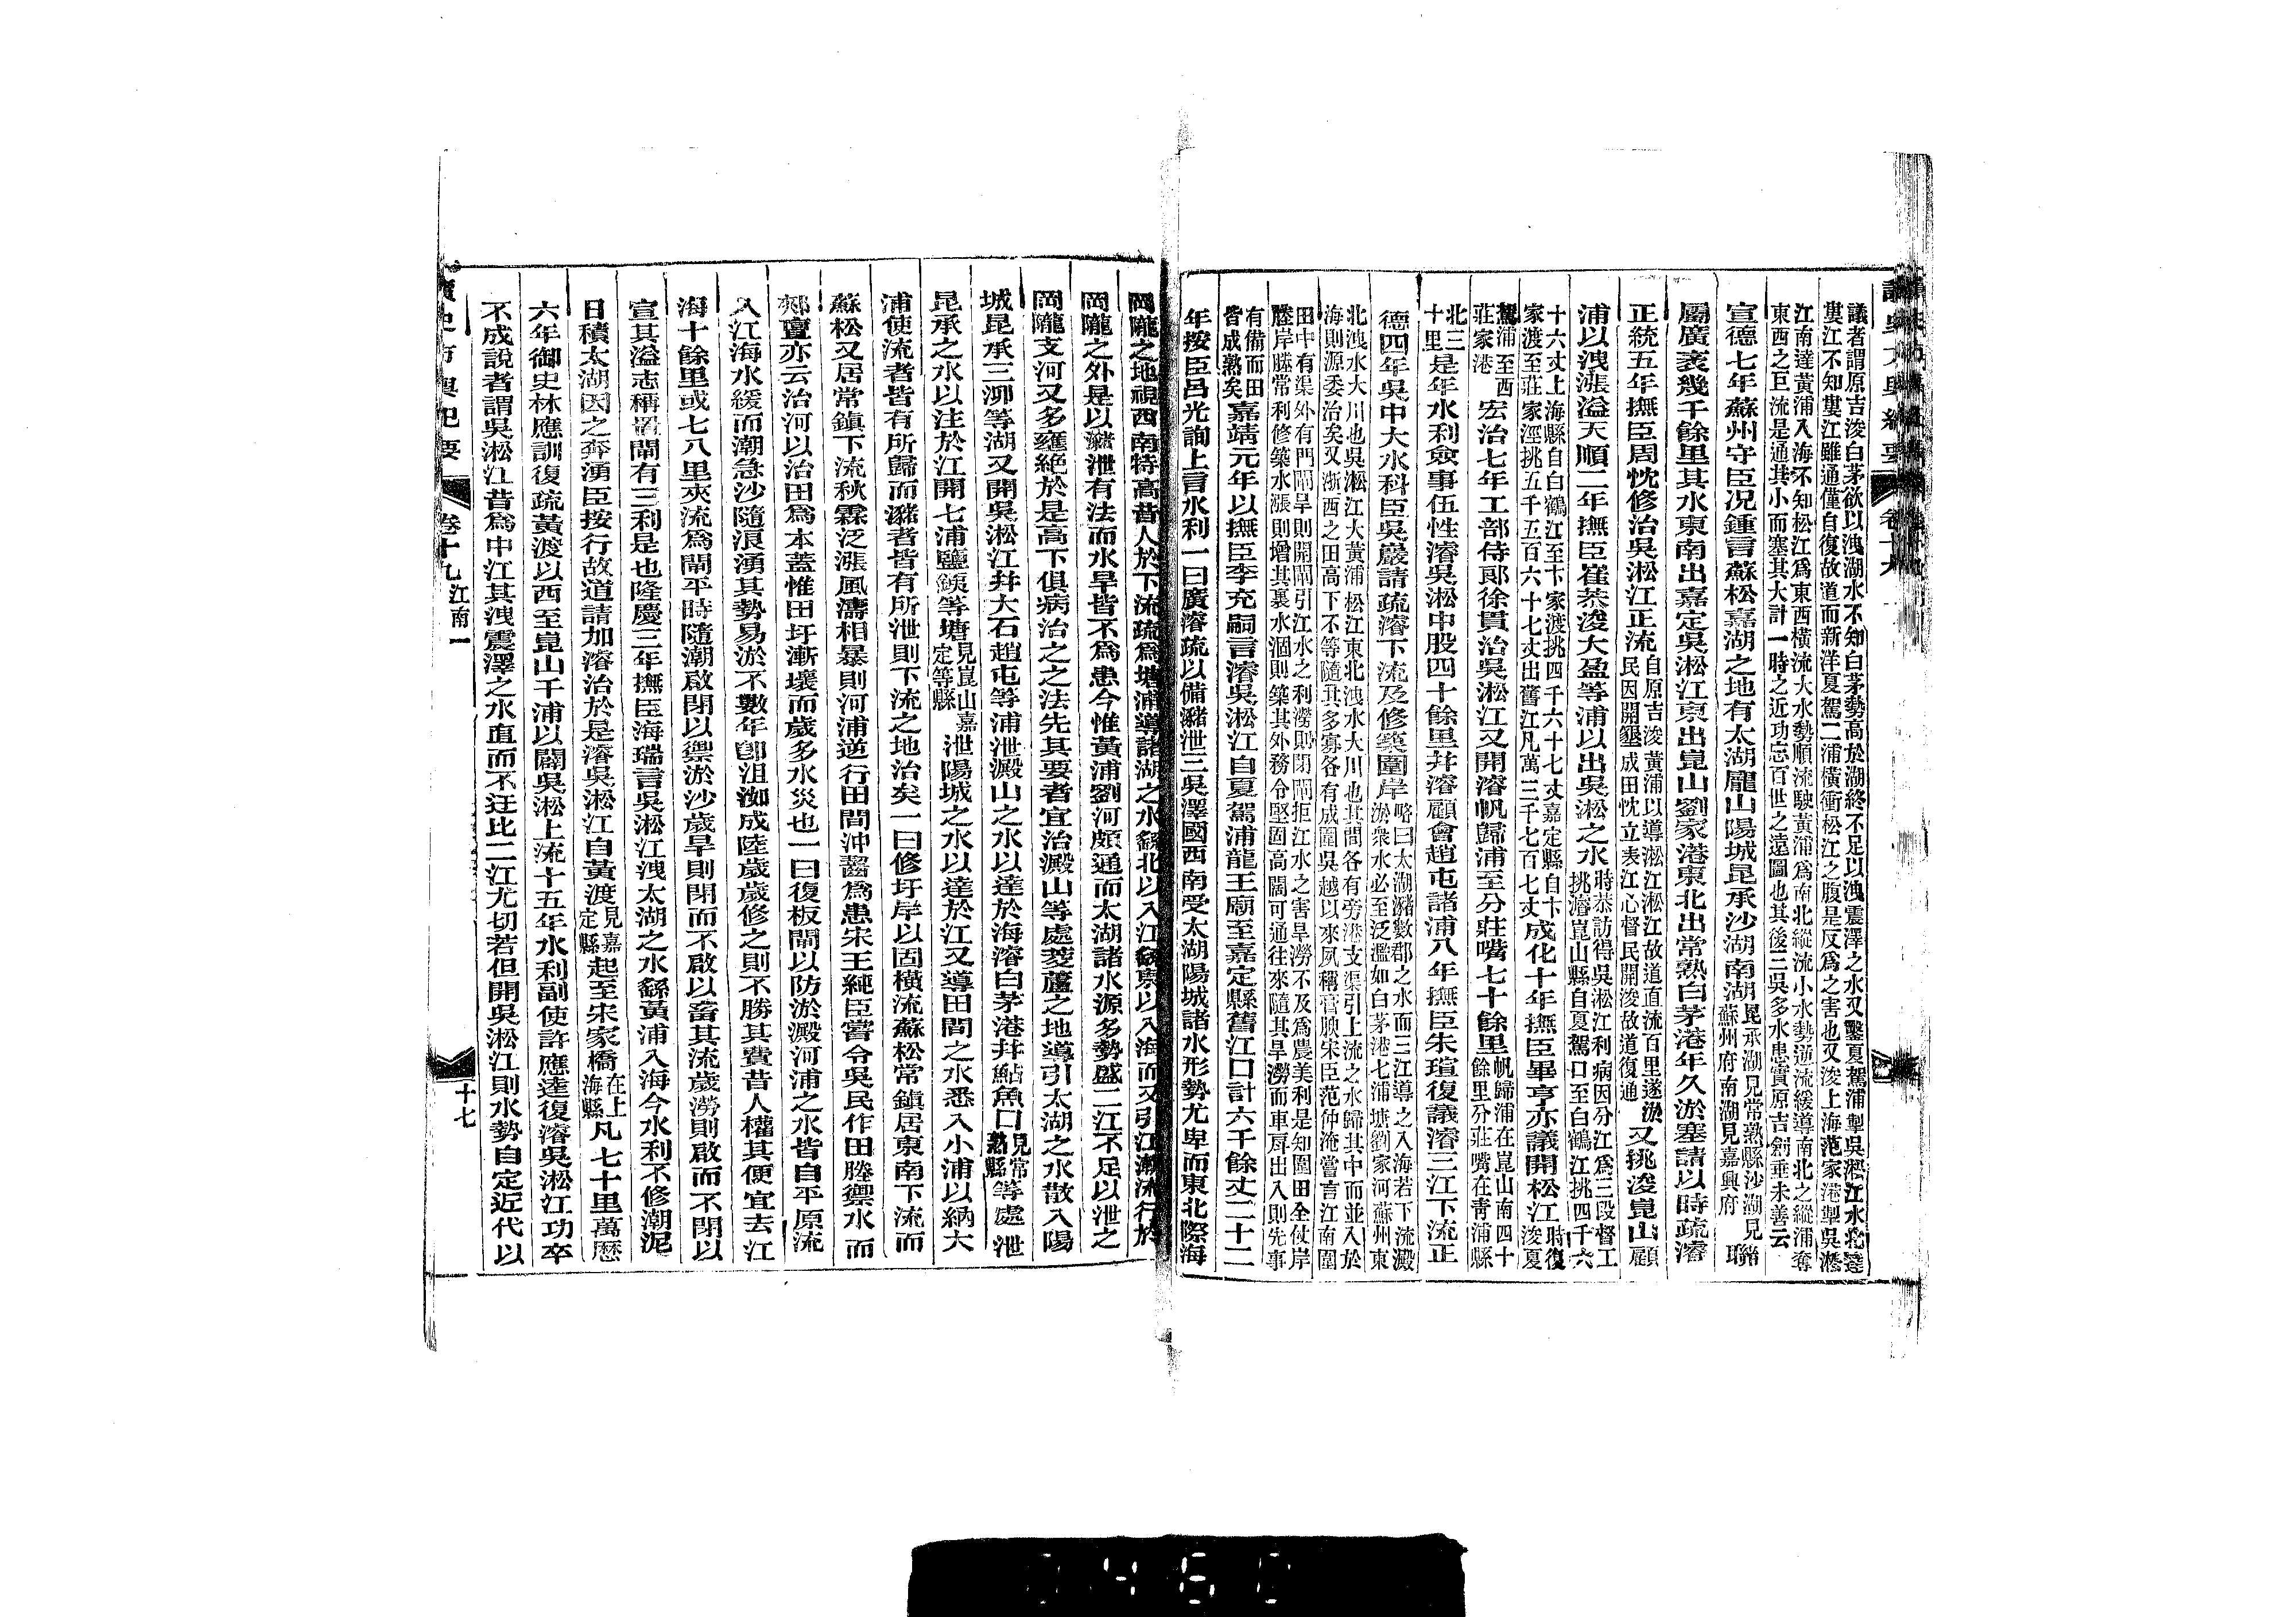 議者謂原吉浚白茅欲以洩湖水不知白茅勢高於湖終不足以洩震澤之水又鑿夏駕浦掣吳淞江水北達
婁江不知婁江雖通僅自復故道而新洋夏駕二浦橫衝松江之腹是反爲之害也又浚上海范家港掣吳淞
江南達黃浦入海不知松江爲東西橫流大水勢順流駛黃浦爲南北縱流小水勢逆流緩導南北之縱浦奪
東西之巨流是通其小而塞其大計一時之近功忘百世之遠圖也其後三吳多水患實原吉創垂未善云
宣德七年蘇州守臣況鍾言蘇松嘉湖之地有太湖龐山陽城昆承沙湖南湖昆承湖見常熟縣沙湖見
蘇州府南湖見嘉興府聯
屬廣袤幾千餘里其水東南出嘉定吳淞江東出崑山劉家港東北出常熟白茅港年久淤塞請以時疏濬
正統五年撫臣周忱修治吳淞江正流自原吉浚黃浦以導淞江淞江故道直流百里遂淤
民因開墾成田忱立表江心督民開浚故道復通又挑浚崑山顧
浦以洩漲溢天順二年撫臣崔恭浚大盈等浦以出吳淞之水時恭訪得吳淞江利病因分江爲三段督工
挑濬崑山縣自夏駕口至白鶴江挑四千六
十六丈上海縣自白鶴江至卞家渡挑四千六十七丈嘉定縣自卞
家渡至莊家涇挑五千五百六十七丈出舊江凡萬三千七百七丈成化十年撫臣畢亨亦議開松江時復
浚夏
駕浦至西
莊家港宏治七年工部侍郎徐貫治吳淞江又開濬帆歸浦至分莊嘴七十餘里帆歸浦在崑山南四十
餘里分莊嘴在青浦縣
北三
十里是年水利僉事伍性濬吳淞中股四十餘里幷濬顧會趙屯諸浦八年撫臣朱瑄復議濬三江下流正
德四年吳中大水科臣吳巖請疏濬下流及修築圍岸略曰太湖瀦數郡之水而三江導之入海若下流澱
淤衆水必至泛濫如白茅港七浦塘劉家河蘇州東
北洩水大川也吳淞江大黃浦松江東北洩水大川也其間各有旁港支渠引上流之水歸其中而並入於
海則源委治矣又浙西之田高下不等隨其多寡各有成圍吳越以來夙稱膏腴宋臣范仲淹嘗言江南圍
田中有渠外有門閘旱則開閘引江水之利澇則閉閘拒江水之害旱澇不及爲農美利是知圍田全仗岸
塍岸塍常利修築水漲則增其裏水涸則築其外務令堅固高闊可通往來隨其旱澇而車戽出入則先事
有備而田
皆成熟矣嘉靖元年以撫臣李充嗣言濬吳淞江自夏駕浦龍王廟至嘉定縣舊江口計六千餘丈二十二
年按臣呂光詢上言水利一曰廣濬疏以備瀦泄三吳澤國西南受太湖陽城諸水形勢尤卑而東北際海
岡隴之地視西南特高昔人於下流疏爲塘浦導諸湖之水繇北以入江繇東以入海而又引江潮流行於
岡隴之外是以瀦泄有法而水旱皆不爲患今惟黃浦劉河頗通而太湖諸水源多勢盛二江不足以泄之
岡隴支河又多壅絕於是高下俱病治之之法先其要者宜治澱山等處茭蘆之地導引太湖之水散入陽
城昆承三泖等湖又開吳淞江幷大石趙屯等浦泄澱山之水以達於海濬白茅港幷鮎魚口見常
熟縣等處泄
昆承之水以注於江開七浦鹽鐵等塘見崑山嘉
定等縣泄陽城之水以達於江又導田間之水悉入小浦以納大
浦使流者皆有所歸而瀦者皆有所泄則下流之地治矣一曰修圩岸以固橫流蘇松常鎮居東南下流而
蘇松又居常鎮下流秋霖泛漲風濤相暴則河浦逆行田間沖齧爲患宋王純臣嘗令吳民作田塍禦水而
郟亶亦云治河以治田爲本蓋惟田圩漸壞而歲多水災也一曰復板閘以防淤澱河浦之水皆自平原流
入江海水緩而潮急沙隨浪湧其勢易淤不數年卽沮洳成陸歲歲修之則不勝其費昔人權其便宜去江
海十餘里或七八里夾流爲閘平時隨潮啟閉以禦淤沙歲旱則閉而不啟以畜其流歲澇則啟而不閉以
宣其溢志稱置閘有三利是也隆慶三年撫臣海瑞言吳淞江洩太湖之水繇黃浦入海今水利不修潮泥
日積太湖因之奔湧臣按行故道請加濬治於是濬吳淞江自黃渡見嘉
定縣起至宋家橋在上
海縣凡七十里萬曆
六年御史林應訓復疏黃渡以西至崑山千浦以闢吳淞上流十五年水利副使許應逵復濬吳淞江功卒
不成說者謂吳淞江昔爲中江其洩震澤之水直而不迂比二江尤切若但開吳淞江則水勢自定近代以
讀史方輿紀要
卷十九 江南一
十七